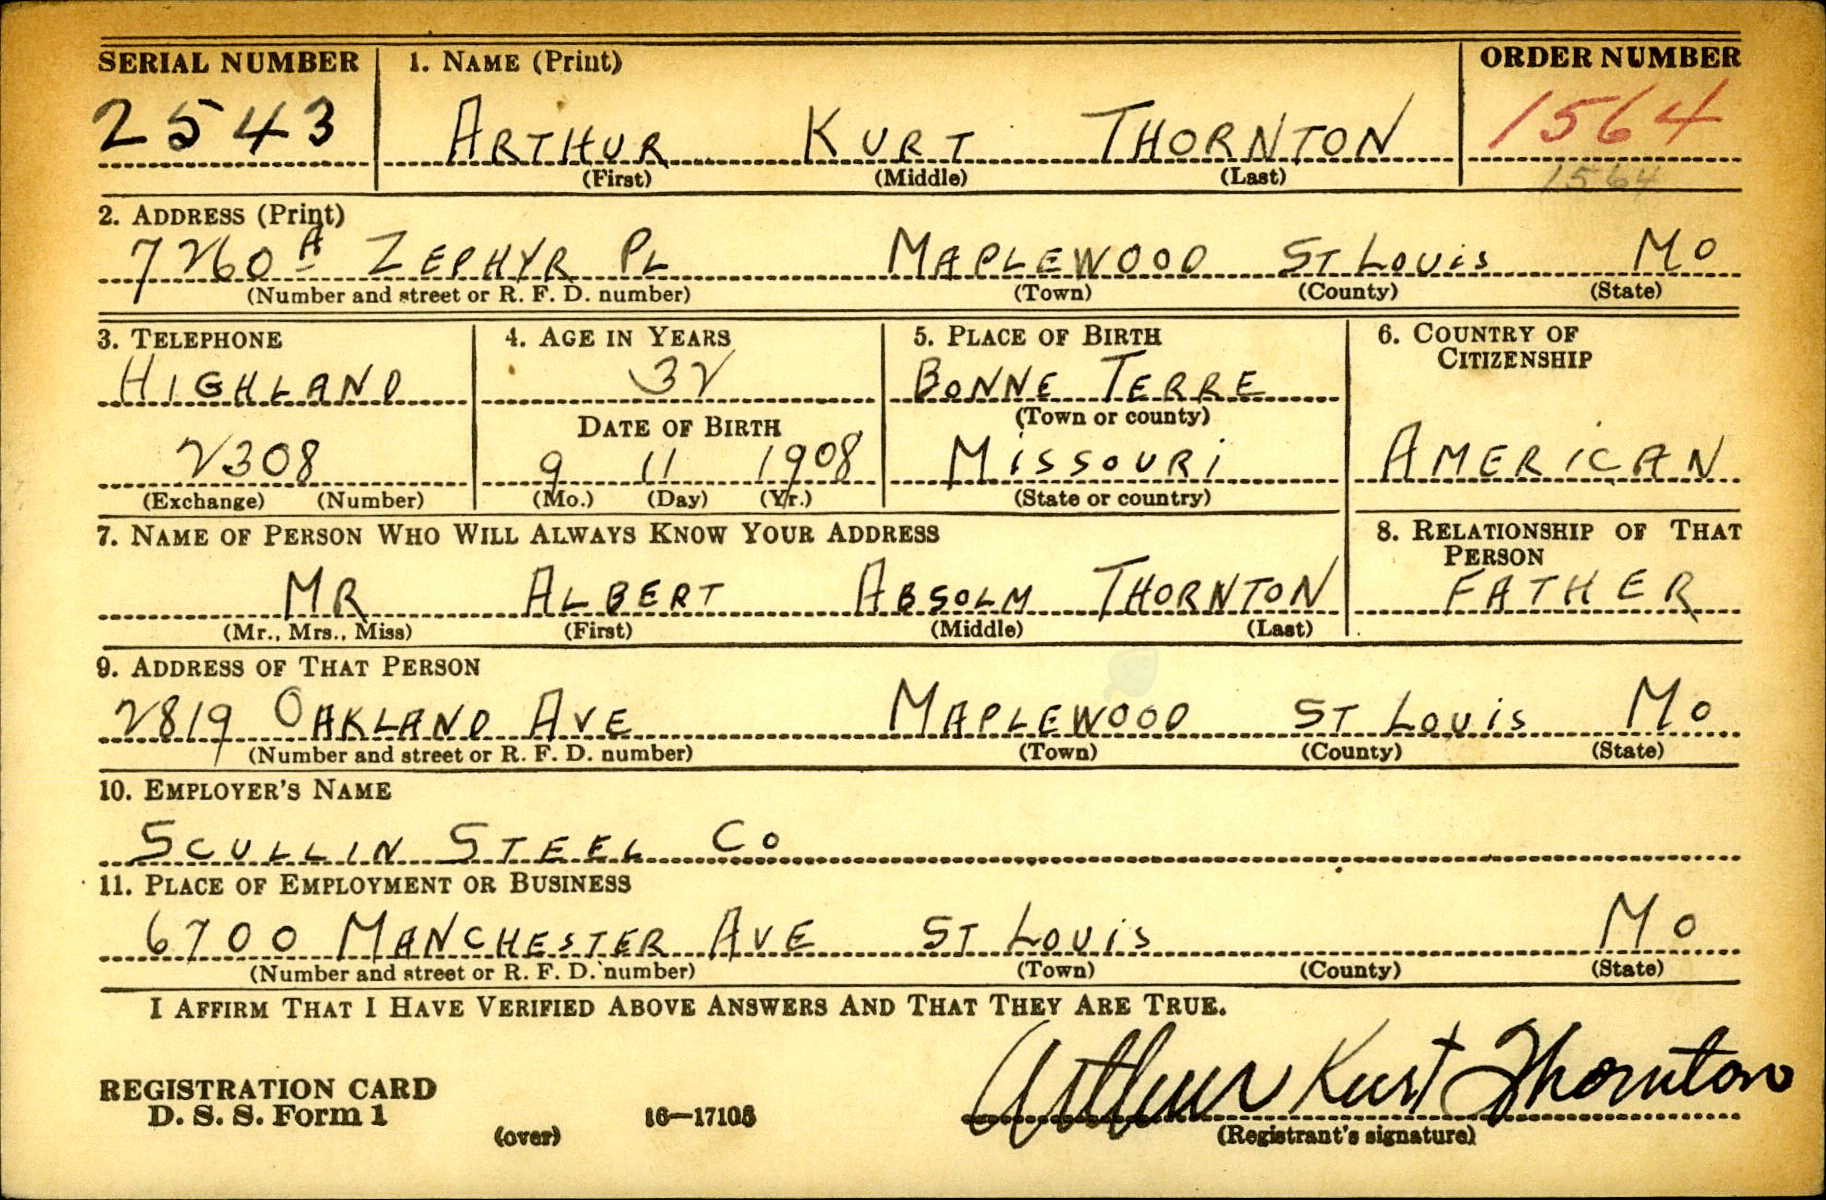 SERIAL NUMBER 1. NAME (Print) ORDER NUMBER
2543 ARTHUR KURT THORNTON 1564
(First) (Middle) (Last) 1564
2. ADDRESS (Print)
7260 A ZEPHYR PL MAPLEWOOD ST LOUIS MO
(Number and street or R. F. D. number) (Town) (County) (State)
3. TELEPHONE 4. AGE IN YEARS 5. PLACE OF BIRTH 6. COUNTRY OF
CITIZENSHIP
HIGHLAND 32 BONNE TERRE
DATE OF BIRTH (Town or county)
2308 9 11 1908 MISSOURI AMERICAN
(Exchange) (Number) (Mo.) (Day) (Yr.) (State or country)
7. NAME OF PERSON WHO WILL ALWAYS KNOW YOUR ADDRESS 8. RELATIONSHIP OF THAT
PERSON
MR ALBERT ABSOLM THORNTON FATHER
(Mr., Mrs., Miss) (First) (Middle) (Last)
9. ADDRESS OF THAT PERSON
2819 OAKLAND AVE MAPLEWOOD ST LOUIS MO
(Number and street or R. F. D. number) (Town) (County) (State)
10. EMPLOYER'S NAME
SCULLIN STEEL CO
11. PLACE OF EMPLOYMENT OR BUSINESS
6700 MANCHESTER AVE ST LOUIS MO
(Number and street or R. F. D. number) (Town) (County) (State)
I AFFIRM THAT I HAVE VERIFIED ABOVE ANSWERS AND THAT THEY ARE TRUE.
REGISTRATION CARD Arthur Kurt Thornton
D. S. S. Form 1 16—17105
(over) (Registrant's signature)